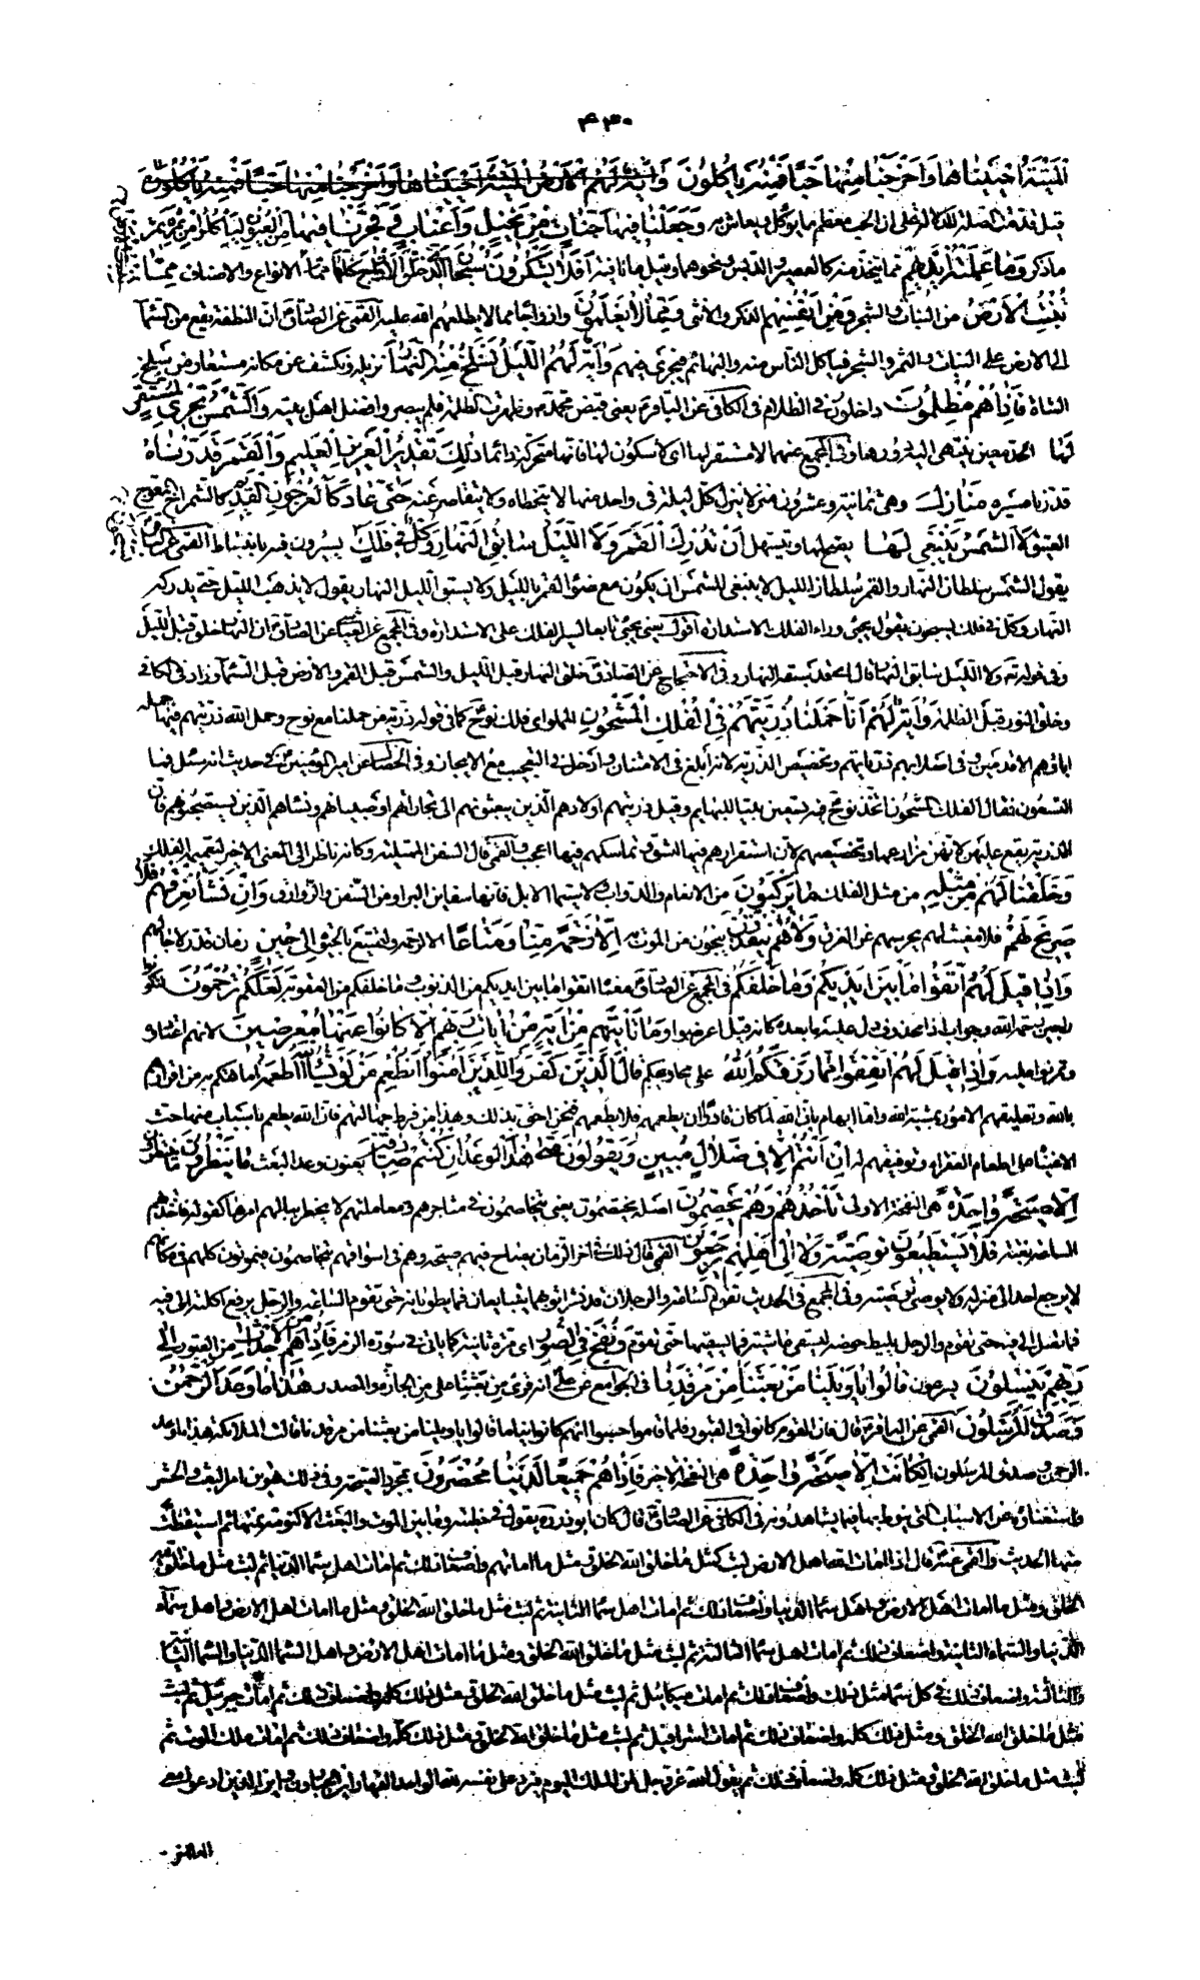 ۴۳۰
الْمَيْتَةُ أَحْيَيْنَاهَا وَأَخْرَجْنَا مِنْهَا حَبًّا فَمِنْهُ يَأْكُلُونَ وَآيَةٌ لَهُمُ الْأَرْضُ الْمَيْتَةُ أَحْيَيْنَاهَا وَأَخْرَجْنَا مِنْهَا حَبًّا فَمِنْهُ يَأْكُلُونَ
قيل قدمت الصلة للدلالة على ان الحب معظم ما يؤكل ويعاش به وَجَعَلْنَا فِيهَا جَنَّاتٍ مِنْ نَخِيلٍ وَأَعْنَابٍ وَفَجَّرْنَا فِيهَا مِنَ الْعُيُونِ لِيَأْكُلُوا مِنْ ثَمَرِهِ ثمر
ما ذكر وَمَا عَمِلَتْهُ أَيْدِيهِمْ مما يتخذ منه كالعصير والدبس ونحوهما وقيل ما نافية أَفَلَا يَشْكُرُونَ سُبْحَانَ الَّذِي خَلَقَ الْأَزْوَاجَ كُلَّهَا الانواع والاصناف مِمَّا
تُنْبِتُ الْأَرْضُ من النبات والشجر وَمِنْ أَنْفُسِهِمْ الذكر والانثى وَمِمَّا لَا يَعْلَمُونَ وازواجا مما لا يطلعهم الله عليه القمي عن الصادق ان النطفة تقع من السماء
الى الارض على النبات والثمر والشجر فيأكل الناس منه والبهائم فيجري فيهم وَآيَةٌ لَهُمُ اللَّيْلُ نَسْلَخُ مِنْهُ النَّهَارَ نزيله ونكشف عن مكانه مستعار من سلخ
الشاة فَإِذَا هُمْ مُظْلِمُونَ داخلون في الظلام في الكافي عن الباقر يعني قبض محمد وظهرت الظلمة فلم يبصروا فضل اهل بيته وَالشَّمْسُ تَجْرِي لِمُسْتَقَرٍّ
لَهَا لحد معين ينتهي اليه دورها وفي المجمع عنهما لا مستقر لها اي لا سكون لها فانها متحركة دائما ذَلِكَ تَقْدِيرُ الْعَزِيزِ الْعَلِيمِ وَالْقَمَرَ قَدَّرْنَاهُ
قدرنا مسيره مَنَازِلَ وهي ثمانية وعشرون منزلا ينزل كل ليلة في واحد منها لا يتخطاه ولا يتقاصر عنه حَتَّى عَادَ كَالْعُرْجُونِ الْقَدِيمِ كالشمراخ المعوج
العتيق لَا الشَّمْسُ يَنْبَغِي لَهَا يصح لها ويتسهل أَنْ تُدْرِكَ الْقَمَرَ وَلَا اللَّيْلُ سَابِقُ النَّهَارِ وَكُلٌّ فِي فَلَكٍ يسيرون فيه بانبساط القمي عن الباقر
يقول الشمس سلطان النهار والقمر سلطان الليل لا ينبغي للشمس ان يكون مع ضوء القمر بالليل ولا يسبق الليل النهار يقول لا يذهب الليل حتى يدركه
النهار وكل في فلك يسبحون يقول يجيء وراء الفلك الاستدارة اقول يعني يجيء تابعا لسير الفلك على الاستدارة وفي المجمع عن العياشي عن الرضا ان النهار خلق قبل الليل
وفي قوله تعالى ولا الليل سابق النهار قال اي قد سبقه النهار وفي الاحتجاج عن الصادق خلق النهار قبل الليل والشمس قبل القمر والارض قبل السماء وزاد في الكافي
وخلق النور قبل الظلمة وَآيَةٌ لَهُمْ أَنَّا حَمَلْنَا ذُرِّيَّتَهُمْ فِي الْفُلْكِ الْمَشْحُونِ المملو اي فلك نوح كما في قوله ذرية من حملنا مع نوح وحمل الله ذريتهم فيها حمله
اباؤهم الاقدمين وفي اصلابهم ذرياتهم وتخصيص الذرية لانه ابلغ في الامتنان وادخل في التعجب مع الايجاز وفي الخصال عن امير المؤمنين في حديث انه سئل فما
التسعون فقال الفلك المشحون اتخذ نوح فيه تسعين بيتا للبهائم وقيل ذريتهم اولادهم الذين يبعثونهم الى تجاراتهم او صبيانهم ونساءهم الذين يستصحبونهم فان
الذرية يقع عليهن لانهن مزارعها وتخصيصهم لان استقرارهم فيها اشق وتماسكهم فيها اعجب والقمي قال السفن الممتلية وكانه ناظر الى المعنى الاخير لتعميم الفلك
وَخَلَقْنَا لَهُمْ مِنْ مِثْلِهِ من مثل الفلك مَا يَرْكَبُونَ من الانعام والدواب لا سيما الابل فانها سفاين البر او من السفن والزوارق وَإِنْ نَشَأْ نُغْرِقْهُمْ فَلَا
صَرِيخَ لَهُمْ فلا مغيث لهم يحرسهم عن الغرق وَلَا هُمْ يُنْقَذُونَ ينجون من الموت به إِلَّا رَحْمَةً مِنَّا وَمَتَاعًا الا لرحمة ولتمتيع بالحيوة إِلَى حِينٍ زمان قدر لاجالهم
وَإِذَا قِيلَ لَهُمُ اتَّقُوا مَا بَيْنَ أَيْدِيكُمْ وَمَا خَلْفَكُمْ في المجمع عن الصادق معناه اتقوا ما بين ايديكم من الذنوب وما خلفكم من العقوبة لَعَلَّكُمْ تُرْحَمُونَ لتكونوا
راجين رحمة الله وجواب اذا محذوف دل عليه ما بعده كانه قيل اعرضوا وَمَا تَأْتِيهِمْ مِنْ آيَةٍ مِنْ آيَاتِ رَبِّهِمْ إِلَّا كَانُوا عَنْهَا مُعْرِضِينَ لانهم اعتادوه
وتمرنوا عليه وَإِذَا قِيلَ لَهُمْ أَنْفِقُوا مِمَّا رَزَقَكُمُ اللَّهُ على محاويجكم قَالَ الَّذِينَ كَفَرُوا لِلَّذِينَ آمَنُوا أَنُطْعِمُ مَنْ لَوْ يَشَاءُ اللَّهُ أَطْعَمَهُ اما تهكم به من اقرارهم
بالله وتعليقهم الامور بمشيته واما ايهام بان الله لما كان قادرا ان يطعمهم فلم يطعمهم فنحن احق بذلك وهذا من فرط جهالتهم فان الله يطعم باسباب منها حث
الاغنياء على اطعام الفقراء وتوفيقهم له إِنْ أَنْتُمْ إِلَّا فِي ضَلَالٍ مُبِينٍ وَيَقُولُونَ مَتَى هَذَا الْوَعْدُ إِنْ كُنْتُمْ صَادِقِينَ يعنون وعد البعث مَا يَنْظُرُونَ ما ينتظرون
إِلَّا صَيْحَةً وَاحِدَةً هي النفخة الاولى تَأْخُذُهُمْ وَهُمْ يَخِصِّمُونَ اصله يختصمون يعني يتخاصمون في متاجرهم ومعاملاتهم لا يخطر ببالهم امرها كقوله فاخذتهم
الساعة بغتة فَلَا يَسْتَطِيعُونَ تَوْصِيَةً وَلَا إِلَى أَهْلِهِمْ يَرْجِعُونَ القمي قال ذلك في اخر الزمان يصاح فيهم صيحة وهم في اسواقهم يتخاصمون فيموتون كلهم في مكانهم
لا يرجع احد الى منزله ولا يوصي بوصية وفي المجمع في الحديث تقوم الساعة والرجلان قد نشرا ثوبهما يتبايعان فما يطويانه حتى تقوم الساعة والرجل يرفع اكلته الى فيه
فما تصل الى فيه حتى تقوم والرجل يليط حوضه ليسقي ماشيته فما يسقيها حتى تقوم وَنُفِخَ فِي الصُّورِ اي مرة ثانية كما ياتي في سورة الزمر فَإِذَا هُمْ مِنَ الْأَجْدَاثِ من القبور إِلَى
رَبِّهِمْ يَنْسِلُونَ يسرعون قَالُوا يَا وَيْلَنَا مَنْ بَعَثَنَا مِنْ مَرْقَدِنَا في الجوامع عن علي انه قرئ من بعثنا على من الجارة والمصدر هَذَا مَا وَعَدَ الرَّحْمَنُ
وَصَدَقَ الْمُرْسَلُونَ القمي عن الباقر قال فان القوم كانوا في القبور فلما قاموا حسبوا انهم كانوا نياما قالوا يا ويلنا من بعثنا من مرقدنا قالت الملائكة هذا ما وعد
الرحمن وصدق المرسلون إِنْ كَانَتْ إِلَّا صَيْحَةً وَاحِدَةً هي النفخة الاخيرة فَإِذَا هُمْ جَمِيعٌ لَدَيْنَا مُحْضَرُونَ بمجرد الصيحة وفي ذلك تهوين امر البعث والحشر
واستغناؤه عن الاسباب التي ينوط بها فيما يشاهدونه في الكافي عن الصادق قال كان ابوذر ره يقول في خطبته وما بين الموت والبعث الا كنومة نمتها ثم استيقظت
منها الحديث والقمي عنه قال اذا امات الله اهل الارض لبث كمثل ما خلق الله الخلق ومثل ما اماتهم واضعاف ذلك ثم امات اهل سماء الدنيا ثم لبث مثل ما خلق الله
الخلق ومثل ما امات اهل الارض واهل سماء الدنيا واضعاف ذلك ثم امات اهل سماء الثانية ثم لبث مثل ما خلق الله الخلق ومثل ما امات اهل الارض واهل سماء
الدنيا والسماء الثانية واضعاف ذلك ثم امات اهل سماء الثالثة ثم لبث مثل ما خلق الله الخلق ومثل ما امات اهل الارض واهل السماء الدنيا والسماء الثانية
والثالثة واضعاف ذلك في كل سماء مثل ذلك واضعاف ذلك ثم امات ميكائيل ثم لبث مثل ما خلق الله الخلق ومثل ذلك كله واضعاف ذلك ثم امات جبرئيل ثم لبث
مثل ما خلق الله الخلق ومثل ذلك كله واضعاف ذلك ثم امات اسرافيل ثم لبث مثل ما خلق الله الخلق ومثل ذلك كله واضعاف ذلك ثم امات ملك الموت ثم
لبث مثل ما خلق الله الخلق ومثل ذلك كله واضعاف ذلك ثم يقول الله عز وجل لمن الملك اليوم فيرد على نفسه لله الواحد القهار اين الجبارون واين الذين ادعوا معي